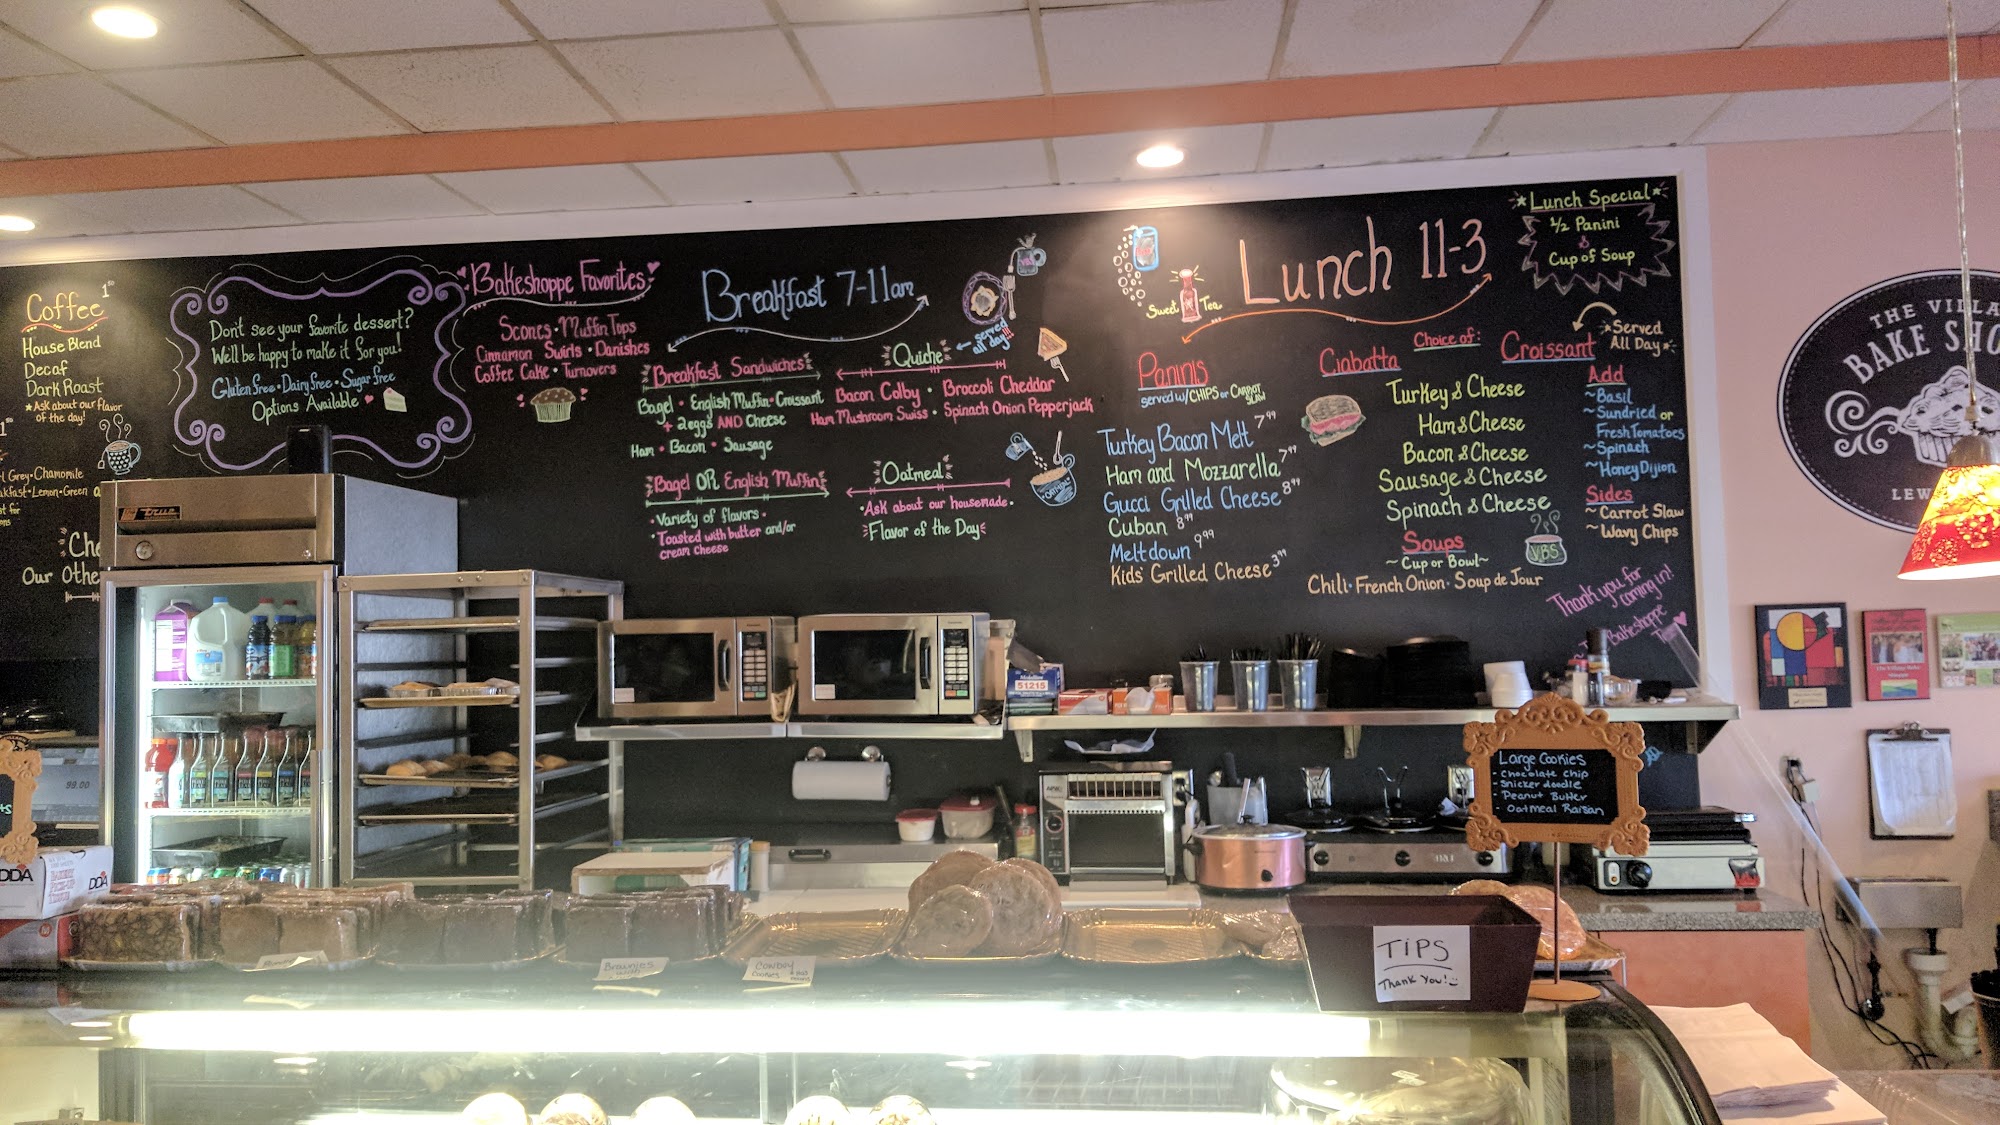 Coffee
House Blend
Decaf
Dark Roast
*Ask about our Flavor
of the day!
Grey • Chamomile
Lemon • Green
Our Othe
Don't see your favorite dessert?
We'll be happy to make it for you!
Gluten free • Dairy free • Sugar free
Options Available
Bakeshoppe Favorites
Scones • Muffin Tops
Cinnamon Swirls • Danishes
Coffee Cake • Turnovers
Breakfast 7-11am
Breakfast Sandwiches
Bagel • English Muffin • Croissant
+ 2 eggs AND Cheese
Ham • Bacon • Sausage
Bagel OR English Muffin
• Variety of flavors •
• Toasted with butter and/or
cream cheese
Quiche
served
all day!!!
Bacon Colby • Broccoli Cheddar
Ham Mushroom Swiss • Spinach Onion Pepperjack
Oatmeal
• Ask about our housemade •
Flavor of the Day
OATMEAL
Sweet Tea
Lunch 11-3
*Lunch Special*
1/2 Panini
&
Cup of Soup
Paninis
served w/ CHIPS or CARROT
SLAW
Turkey Bacon Melt 7.99
Ham and Mozzarella 7.99
Gucci Grilled Cheese 8.99
Cuban 8.99
Meltdown 9.99
Kids' Grilled Cheese 3.99
Choice of:
Ciabatta
Croissant
*Served
All Day*
Turkey & Cheese
Ham & Cheese
Bacon & Cheese
Sausage & Cheese
Spinach & Cheese
Add
~Basil
~Sundried or
Fresh Tomatoes
~Spinach
~Honey Dijion
Sides
~Carrot Slaw
~Wavy Chips
Soups
~Cup or Bowl~
Chili • French Onion • Soup de Jour
VBS
Thank you for
coming in!
Bakeshoppe
THE VILLA
BAKE SHO
LEW
true
51215
99.00
DDA
DDA
Large Cookies
- Chocolate Chip
- Snickerdoodle
- Peanut Butter
- Oatmeal Raisan
Brownies
with
Cowboy
Cookies
TIPS
Thank You!